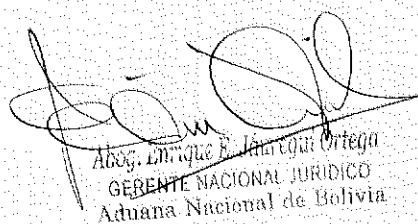 Abog. Enrique E. Jauregui Ortega
GERENTE NACIONAL JURIDICO
Aduana Nacional de Bolivia